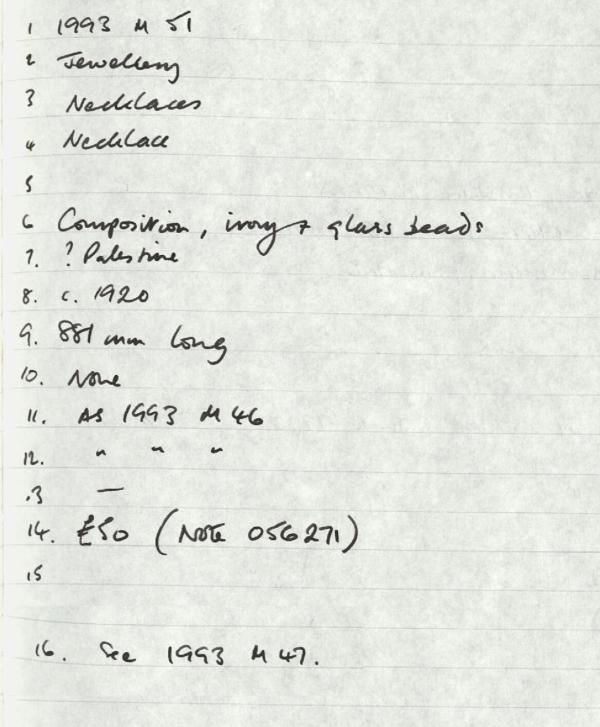 1 1993 M 51
2 Jewellery
3 Necklaces
4 Necklace
5
6 Composition, ivory + glass beads
7. ? Palestine
8. c. 1920
9. 881 mm long
10. None
11. As 1993 M 46
12. " " "
13 —
14. £50 (Note 056271)
15
16. See 1993 M 47.